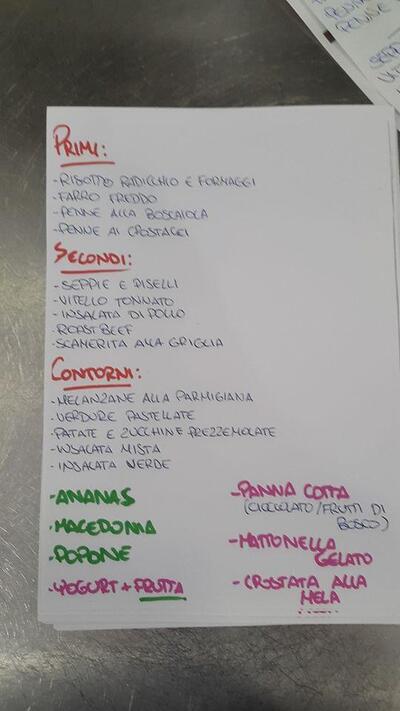 PRIMI:
-RISOTTO RADICCHIO E FORMAGGI
-FARRO FREDDO
-PENNE ALLA BOSCAIOLA
-PENNE AI CROSTACEI
SECONDI:
-SEPPIE E PISELLI
-VITELLO TONNATO
-INSALATA DI POLLO
-ROAST BEEF
-SCAMERITA ALLA GRIGLIA
CONTORNI:
-MELANZANE ALLA PARMIGIANA
-VERDURE PASTELLATE
-PATATE E ZUCCHINE PREZZEMOLATE
-INSALATA MISTA
-INSALATA VERDE
-ANANAS
-MACEDONIA
-POPONE
-YOGURT + FRUTTA
-PANNA COTTA
(CIOCCOLATO/FRUTTI DI
BOSCO)
-MATTONELLA
GELATO
-CROSTATA ALLA
MELA
PENNE